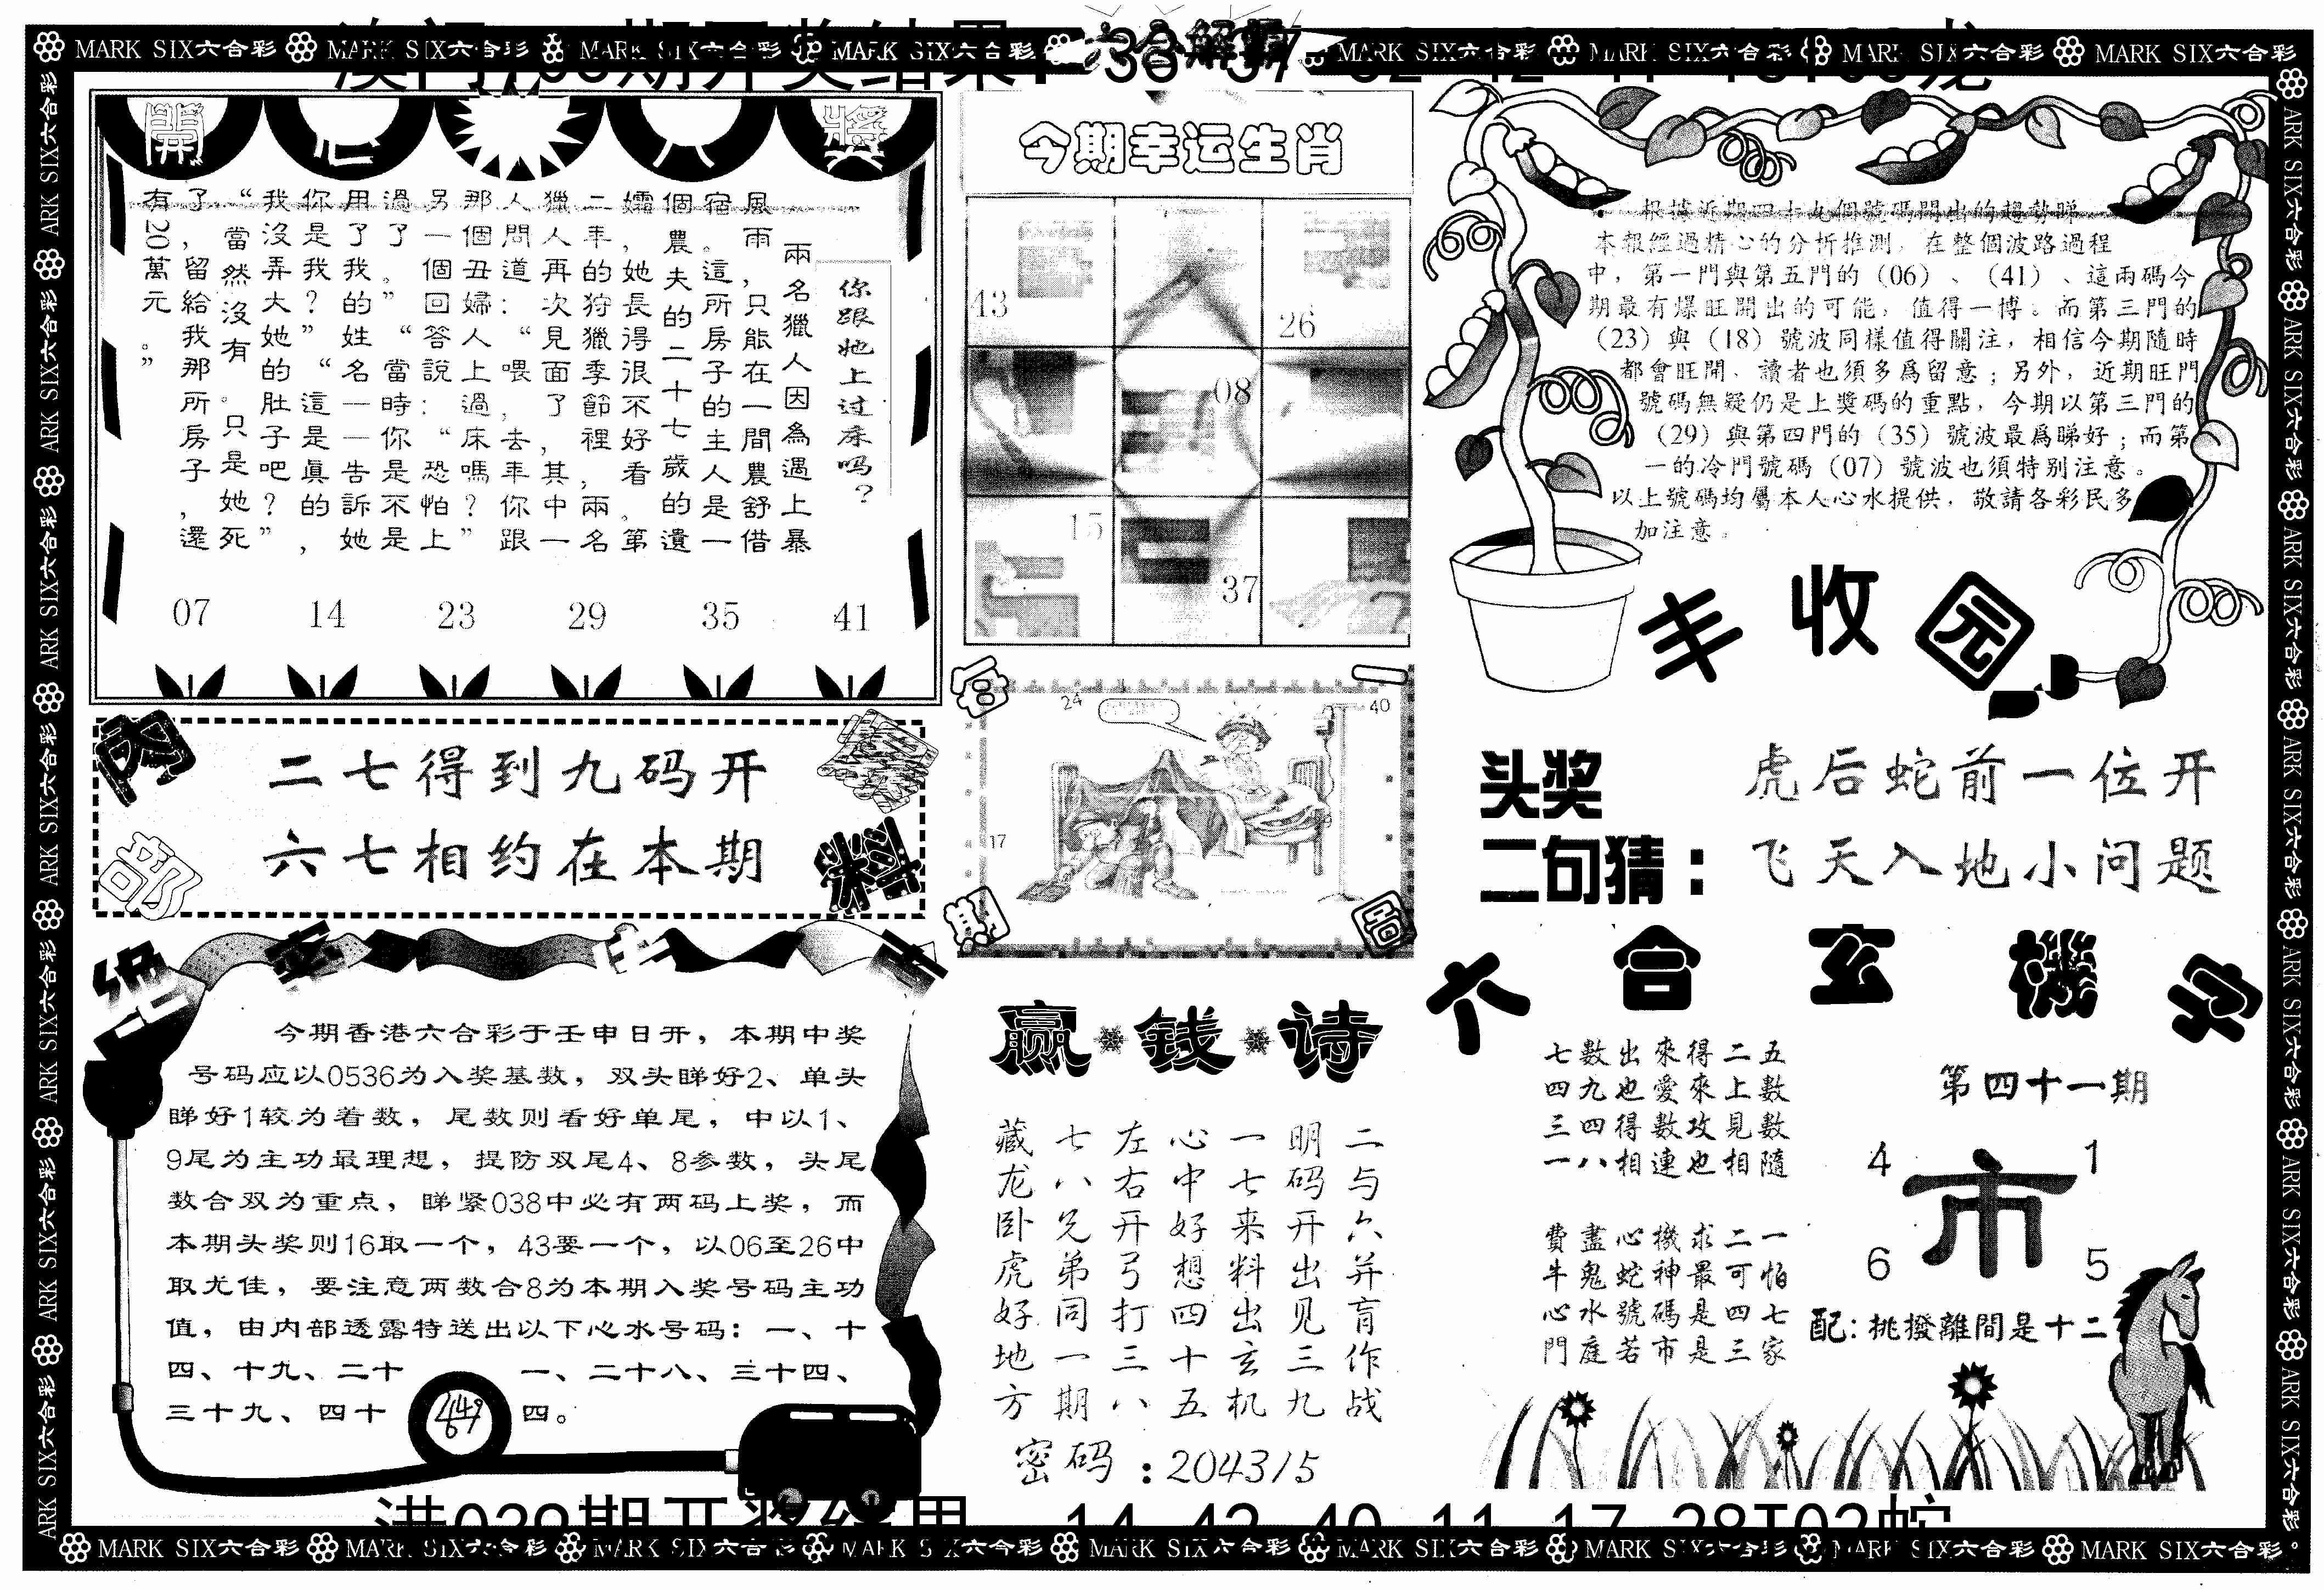 六合解碼
MARK SIX六合彩 MARK SIX六合彩 MARK SIX六合彩 MARK SIX六合彩 MARK SIX六合彩 MARK SIX六合彩 MARK SIX六合彩 MARK SIX六合彩
開
獎
你跟她上过床吗？
兩名獵人因為遇上暴
風雨，只能在一間農舒借
宿。這所房子的主人是一
個農夫的二十七歲的遺
孀，她長得很不好看。第
二年的狩獵季節裡，兩名
獵人再次見面了，其中一
人問道：“喂，去年你跟
那個丑婦人上過床嗎？”
另一個回答說：“恐怕上
過了。”“當時你是不是
用了我的姓名一一告訴她
你是我？”“這是真的，
我沒弄大她的肚子吧？”
“當然沒有。只是她死
了，留給我那所房子，還
有20萬元。”
07 14 23 29 35 41
今期幸运生肖
43
26
08
15
37
根據近期四十九個號碼開出的趨勢睇
本報經過精心的分析推測，在整個波路過程
中，第一門與第五門的（06）、（41）、這兩碼今
期最有爆旺開出的可能，值得一博。而第三門的
（23）與（18）號波同樣值得關注，相信今期隨時
都會旺開，讀者也須多為留意；另外，近期旺門
號碼無疑仍是上獎碼的重點，今期以第三門的
（29）與第四門的（35）號波最為睇好；而第
一的冷門號碼（07）號波也須特别注意。
以上號碼均屬本人心水提供，敬請各彩民多
加注意。
丰收园
内部
二七得到九码开
六七相约在本期
合
一
期
圖
24
40
17
头奖
二句猜：
虎后蛇前一位开
飞天入地小问题
绝密
今期香港六合彩于壬申日开，本期中奖
号码应以0536为入奖基数，双头睇好2、单头
睇好1较为着数，尾数则看好单尾，中以1、
9尾为主功最理想，提防双尾4、8参数，头尾
数合双为重点，睇紧038中必有两码上奖，而
本期头奖则16取一个，43要一个，以06至26中
取尤佳，要注意两数合8为本期入奖号码主功
值，由内部透露特送出以下心水号码：一、十
四、十九、二十一、二十八、三十四、
三十九、四十四。
赢钱诗
二与六并肓作战
明码开出见三九
一七来料出玄机
心中好想四十五
左右开弓打三八
七八兄弟同一期
藏龙卧虎好地方
密码：204315
六合玄機字
七數出來得二五
四九也愛來上數
三四得數攻見數
一八相連也相隨
費盡心機求二一
牛鬼蛇神最可怕
心水號碼是四七
門庭若市是三家
第四十一期
4 1
市
6 5
配：挑撥離間是十二
MARK SIX六合彩 MARK SIX六合彩 MARK SIX六合彩 MARK SIX六合彩 MARK SIX六合彩 MARK SIX六合彩 MARK SIX六合彩 MARK SIX六合彩 MARK SIX六合彩